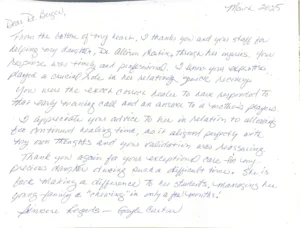 March 2025
Dear Dr. Berger,
From the bottom of my heart, I thank you and your staff for
helping my daughter, Dr. Allison Martin, through her injuries. Your
response was timely and professional. I know your expertise
played a crucial role in her relatively quick recovery.
You were the exact chosen healer to have responded to
that early morning call and an answer to a mother's prayers.
I appreciate your advice to her in relation to allowing
for continued healing time, as it aligned perfectly with
my own thoughts and your validation was reassuring.
Thank you again for your exceptional care for my
precious daughter during such a difficult time. She is
back making a difference to her students, managing her
young family &
in only a few months!
Rogers